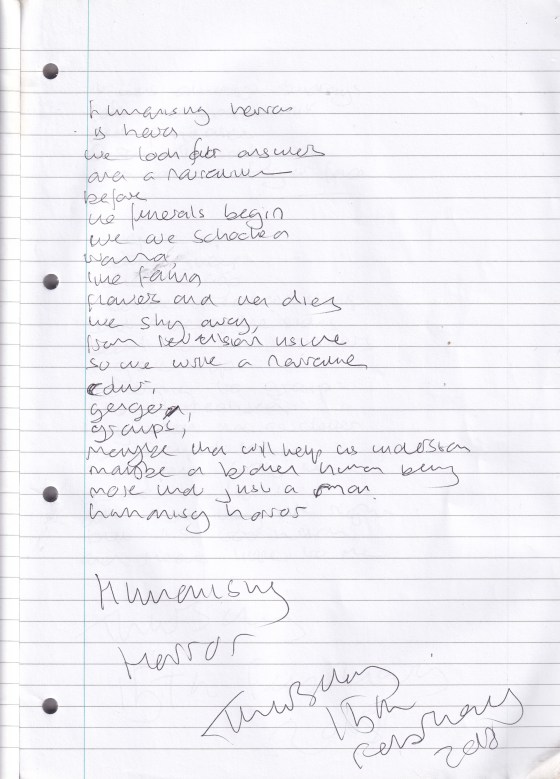 humanising horror
is hard
we look for answers
and a narrative
before
the funerals begin
we are schocked
like
flowers and
we shy away,
from television
so we write a narrative
groups,
maybe that will help us understan
maybe a broken human being
more that just a man.
humanisg horror
Humanising
Horror
Thursday
15th
February
2018